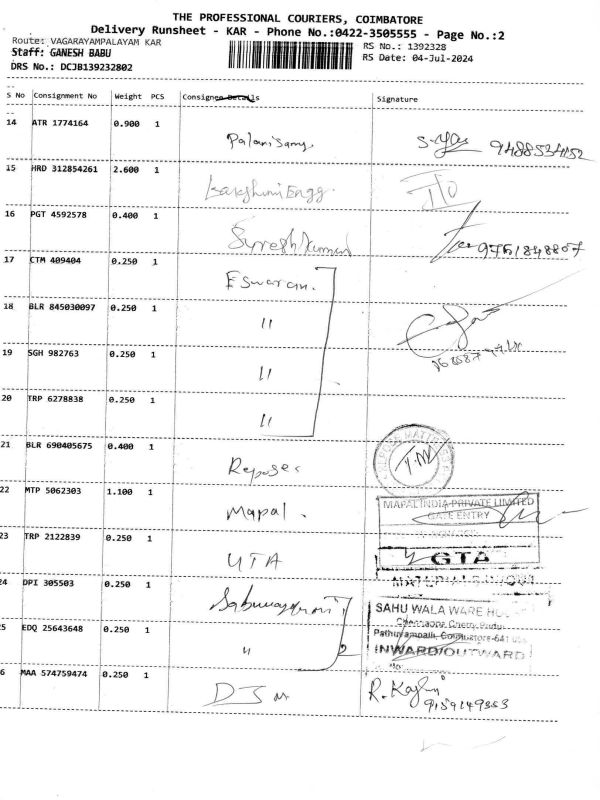 THE PROFESSIONAL COURIERS, COIMBATORE
Delivery Runsheet - KAR - Phone No.:0422-3505555 - Page No.:2
Route: VAGARAYAMPALAYAM KAR
Staff: GANESH BABU
DRS No.: DCJB139232802
RS No.: 1392328
RS Date: 04-Jul-2024
S No Consignment No Weight PCS Consignee Details Signature
14 ATR 1774164 0.900 1 Palanisamy 9488534152
15 HRD 312854261 2.600 1 Lakshmi Engg.
16 PGT 4592578 0.400 1 Sureshkumar 9761848807
17 CTM 409404 0.250 1 Eswaran.
18 BLR 845030097 0.250 1 "
19 SGH 982763 0.250 1 "
20 TRP 6278838 0.250 1 "
21 BLR 690405675 0.400 1 Reposes
22 MTP 5062303 1.100 1 Mapal.
MAPAL INDIA PRIVATE LIMITED
GATE ENTRY
23 TRP 2122839 0.250 1 UTA
GTA
24 DPI 305503 0.250 1
SAHU WALA WARE
Pathuvampalli, Coimbatore-641
25 EDQ 25643648 0.250 1 "
INWARD/OUTWARD
26 MAA 574759474 0.250 1 R. 9159149353